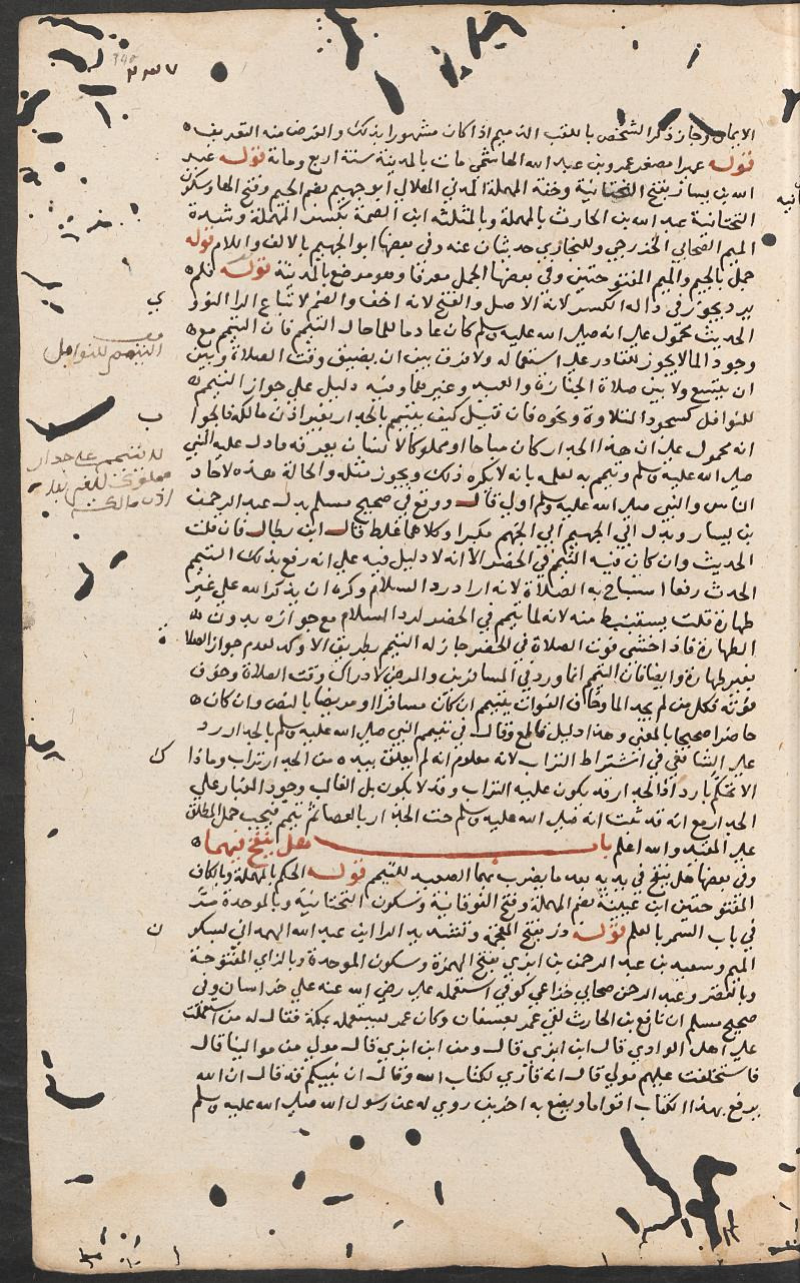 ٣٤٥
الايمان وجاز ذكر الشخص باللقب الذميم اذا كان مشهورا بذلك والغرض منه التعريف
قوله عميرا مصغر عمرو بن عبد الله الهاشمي مات بالمدينة سنة اربع ومائة قوله عبد
الله بن يسار بفتح التحتانية وخفة المهملة المدني الهلالي ابو جهيم بضم الجيم وفتح الها وسكون
التحتانية عبد الله بن الحارث بالمهملة وبالمثلثه ابن الصمة بكسر المهملة وشدة
الميم الصحابي الخزرجي وللبخاري حديثان عنه وفي بعضها ابو الجهيم بالالف واللام قوله
جمل بالجيم والميم المفتوحتين وفي بعضها الجمل معرفا وهو موضع بالمدينة قوله فلم
يرد يجوز في داله الكسر لانه الاصل والفتح لانه اخف والضم لاتباع الرا النوو
ي
الحديث محمول على انه صلى الله عليه وسلم كان عادما للما حال التيمم فان التيمم مع
وجود الما لا يجوز للقادر على استعماله ولا فرق بين ان يضيق وقت الصلاة وبين
التيمم للنوافل
ان يتسع ولا بين صلاة الجنازة والعيد وغيرهما وفيه دليل على جواز التيمم
للنوافل كسجود التلاوة ونحوه فان قيل كيف يتيمم بالجدار بغير اذن مالكه فالجوا
ب
انه محمول على ان هذا الجدار كان مباحا او مملوكا لانسان يعرفه فادل عليه النبي
له يتيمم على جدار
صلى الله عليه وسلم وتيمم به لعلمه بانه لا يكره ذلك ويجوز مثله والحالة هذه لاحاد
مملوك للغير بغير
الناس والنبي صلى الله عليه وسلم اولى قال ووقع في صحيح مسلم بدل عبد الله عبد الرحمن
اذن مالكه
بن يسار وبدل ابي الجهيم ابي الجهم مكبرا وكلاهما غلط قال ابن بطال فان قلت
الحديث وان كان فيه التيمم في الحضر الا انه لا دليل فيه على انه رفع بذلك التيمم
الحدث رفعا استباح به الصلاة لانه اراد رد السلام وكره ان يذكر الله على غير
طهارة قلت يستنبط منه لانه لما تيمم في الحضر لرد السلام مع جوازه بدون
الطهارة فاذا خشي فوت الصلاة في الحضر جاز له التيمم بطريق الاوكد لعدم جواز الصلا
ة
بغير طهارة وايضا فان التيمم انما ورد في المسافرين والمرضى لادراك وقت الصلاة وخوف
فوته فكل من لم يجد الما وخاف الفوات يتيمم ان كان مسافرا او مريضا بالنص وان كان
حاضرا صحيحا بالمعنى وهذا دليل قاطع وقال في تيمم النبي صلى الله عليه وسلم بالجدار رد
على الشافعي في اشتراط التراب لانه معلوم انه لم يعلق بيده من الجدار تراب وماذا
ك
الا تحكم بارد اذ الجدار قد يكون عليه التراب وقد لا يكون بل الغالب وجود الغبار على
الجدار مع انه قد ثبت انه صلى الله عليه وسلم حت الجدار بالعصا ثم تيمم فيجب حمل المطلق
على المقيد والله اعلم باب هل ينفخ فيهما
وفي بعضها هل ينفخ في يديه بعد ما يضرب بهما الصعيد للتيمم قوله الحكم بالمهملة وبالكاف
المفتوحتين ابن عيينة بضم المهملة وفتح الفوقانية وسكون التحتانية وبالموحدة مر
في باب السمر بالعلم قوله ذر بفتح المعجمة وتشديد الرا ابن عبد الله الهمداني بسكو
ن
الميم وسعيد بن عبد الرحمن بن ابزي بفتح الهمزة وسكون الموحدة وبالزاي المفتوحة
وبالقصر وعبد الرحمن صحابي خزاعي كوفي استعمله علي رضي الله عنه على خراسان وفي
صحيح مسلم ان نافع بن الحارث لقي عمر بعسفان وكان عمر يستعمله بمكة فقال له من استعملت
على اهل الوادي قال ابن ابزي قال ومن ابن ابزي قال مولى من موالينا قال
فاستخلفت عليهم مولى قال انه قاري لكتاب الله وقال ان نبيكم قد قال ان الله
يرفع بهذا الكتاب اقواما ويضع به اخرين روي له عن رسول الله صلى الله عليه وسلم